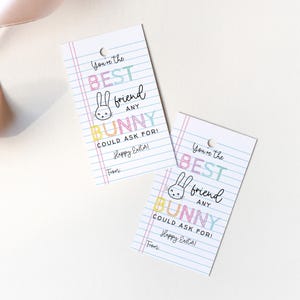 You're the
BEST
friend
ANY
BUNNY
COULD ASK FOR!
Happy Easter!
From:
You're the
BEST
friend
ANY
BUNNY
COULD ASK FOR!
Happy Easter!
From: